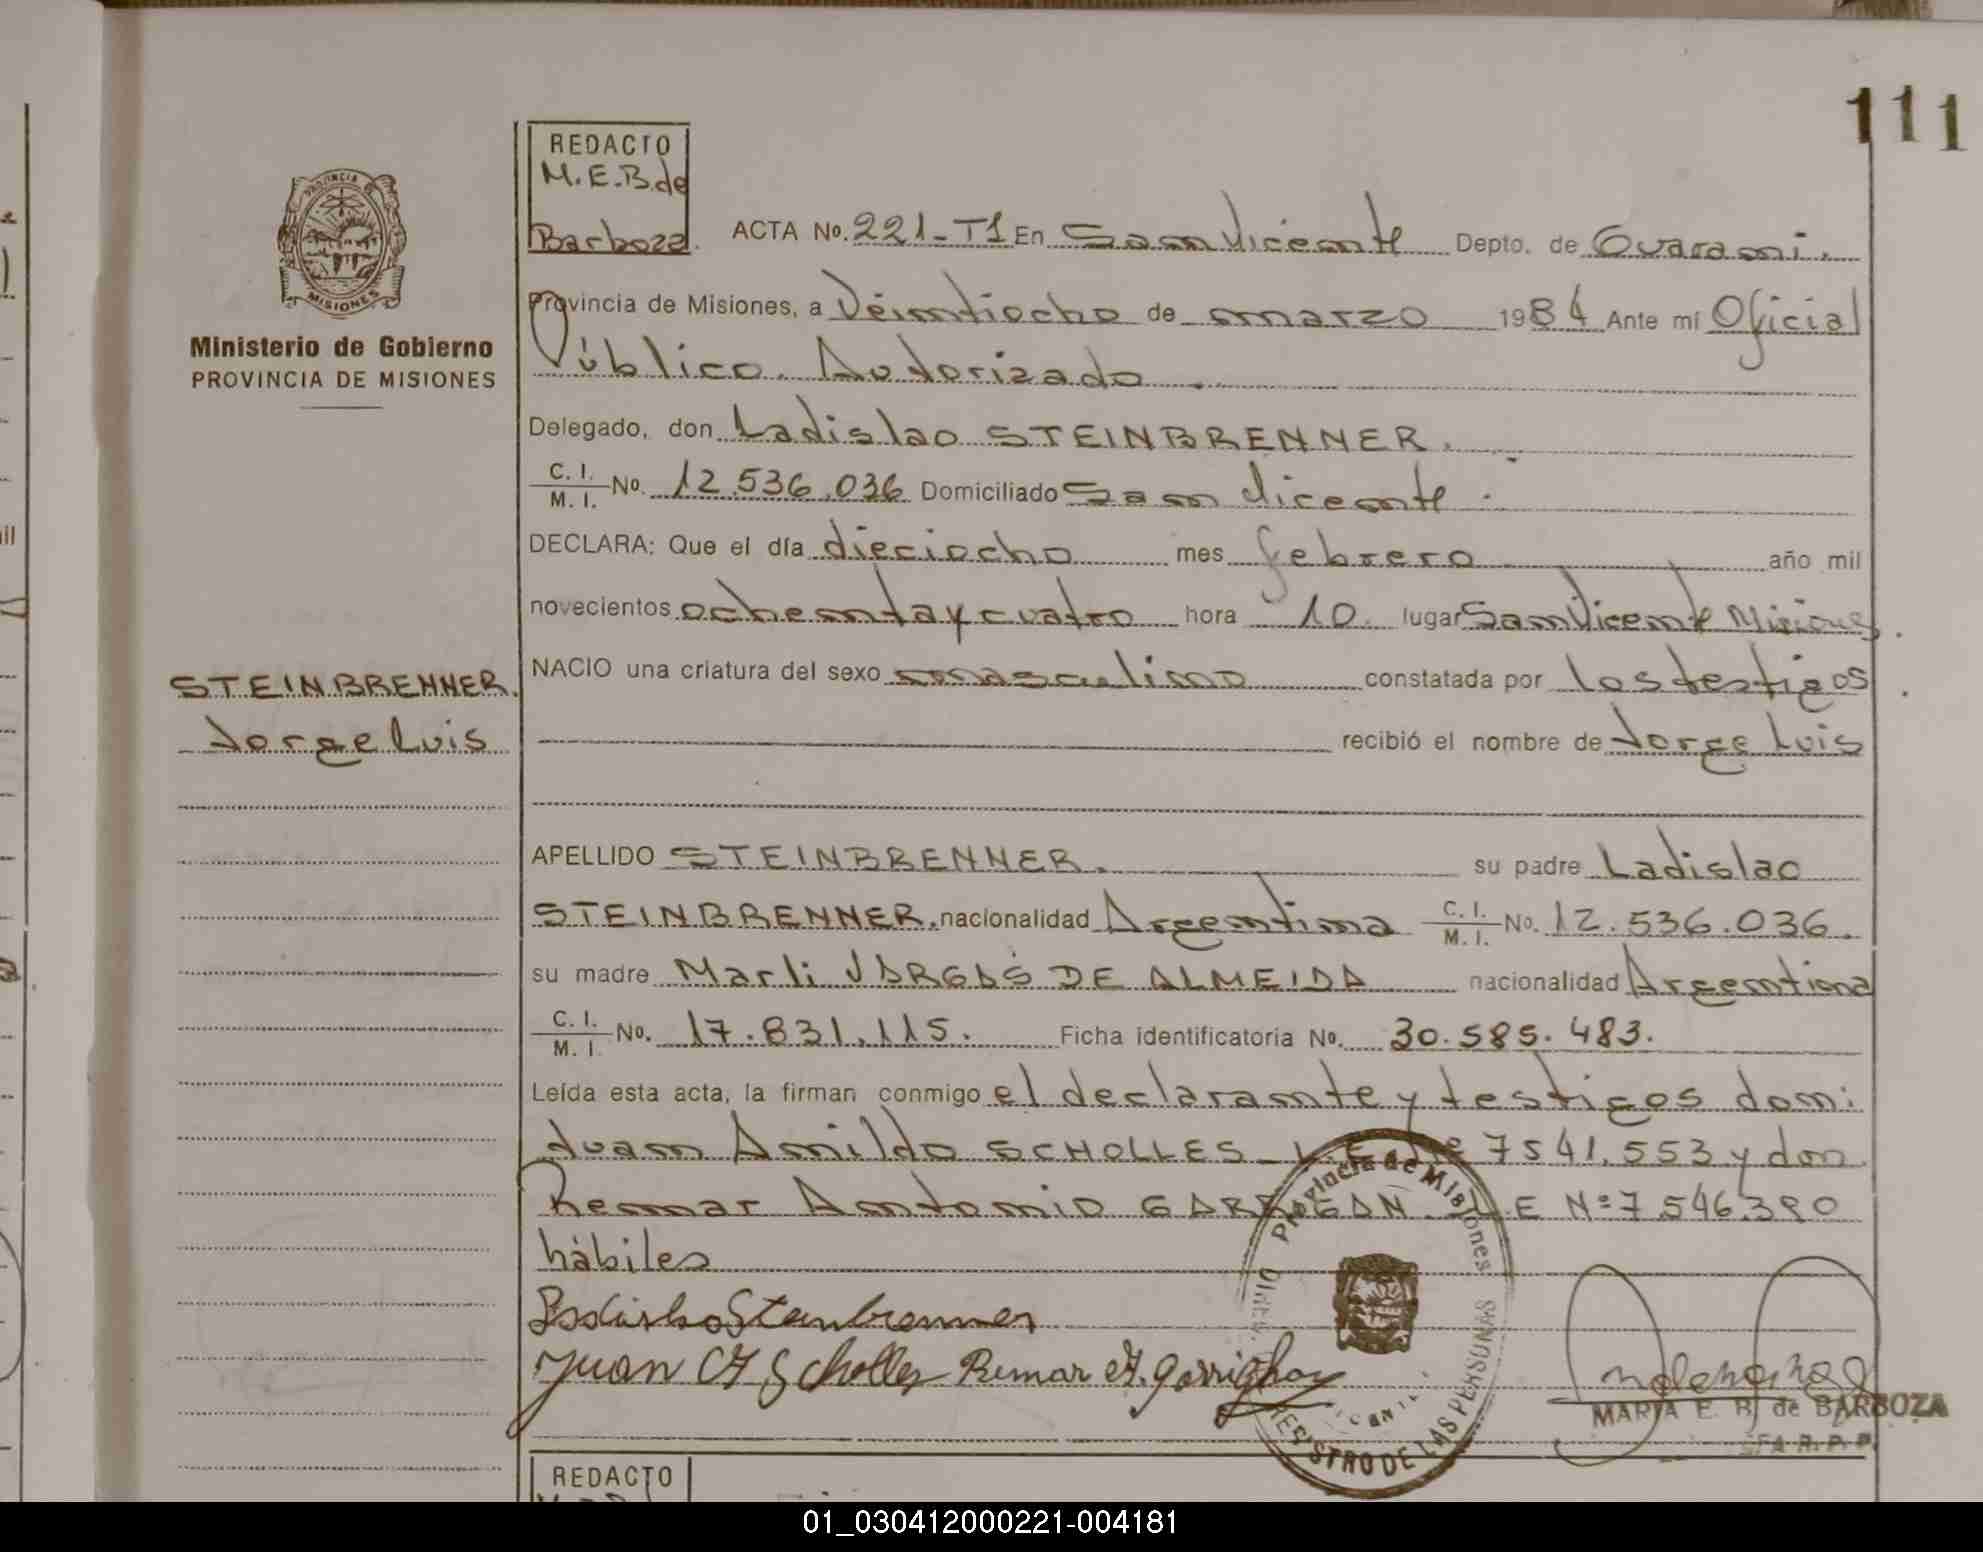 111
REDACTO
M.E.B. de
Barboza.
ACTA No. 221-T1 En San Vicente Depto. de Guarani.
Provincia de Misiones, a Veintiocho de marzo 1984 Ante mi Oficial
Público Autorizado.
Delegado, don Ladislao STEINBRENNER.
C. I. / M. I. No. 12.536.036 Domiciliado San Vicente.
DECLARA: Que el día dieciocho mes febrero año mil
novecientos ochenta y cuatro hora 10. lugar San Vicente Misiones.
NACIO una criatura del sexo masculino constatada por los testigos
recibió el nombre de Jorge Luis
APELLIDO STEINBRENNER. su padre Ladislao
STEINBRENNER. nacionalidad Argentina C. I. / M. I. No. 12.536.036.
su madre Marli VARGAS DE ALMEIDA nacionalidad Argentina
C. I. / M. I. No. 17.831.115. Ficha identificatoria No. 30.585.483.
Leída esta acta, la firman conmigo el declarante y testigos don:
Juan Anildo SCHOLLES - L.E. Nº 7541.553 y don
Remar Antonio GARRIGAN. L.E Nº 7.546.390
hábiles
Ladislao Steinbrenner
Juan A Scholles Remar A. Garrighan
MARIA E. B. de BARBOZA
Provincia de Misiones
REGISTRO DE LAS PERSONAS
PROVINCIA DE
MISIONES
Ministerio de Gobierno
PROVINCIA DE MISIONES
STEINBRENNER.
Jorge Luis
REDACTO
01_030412000221-004181